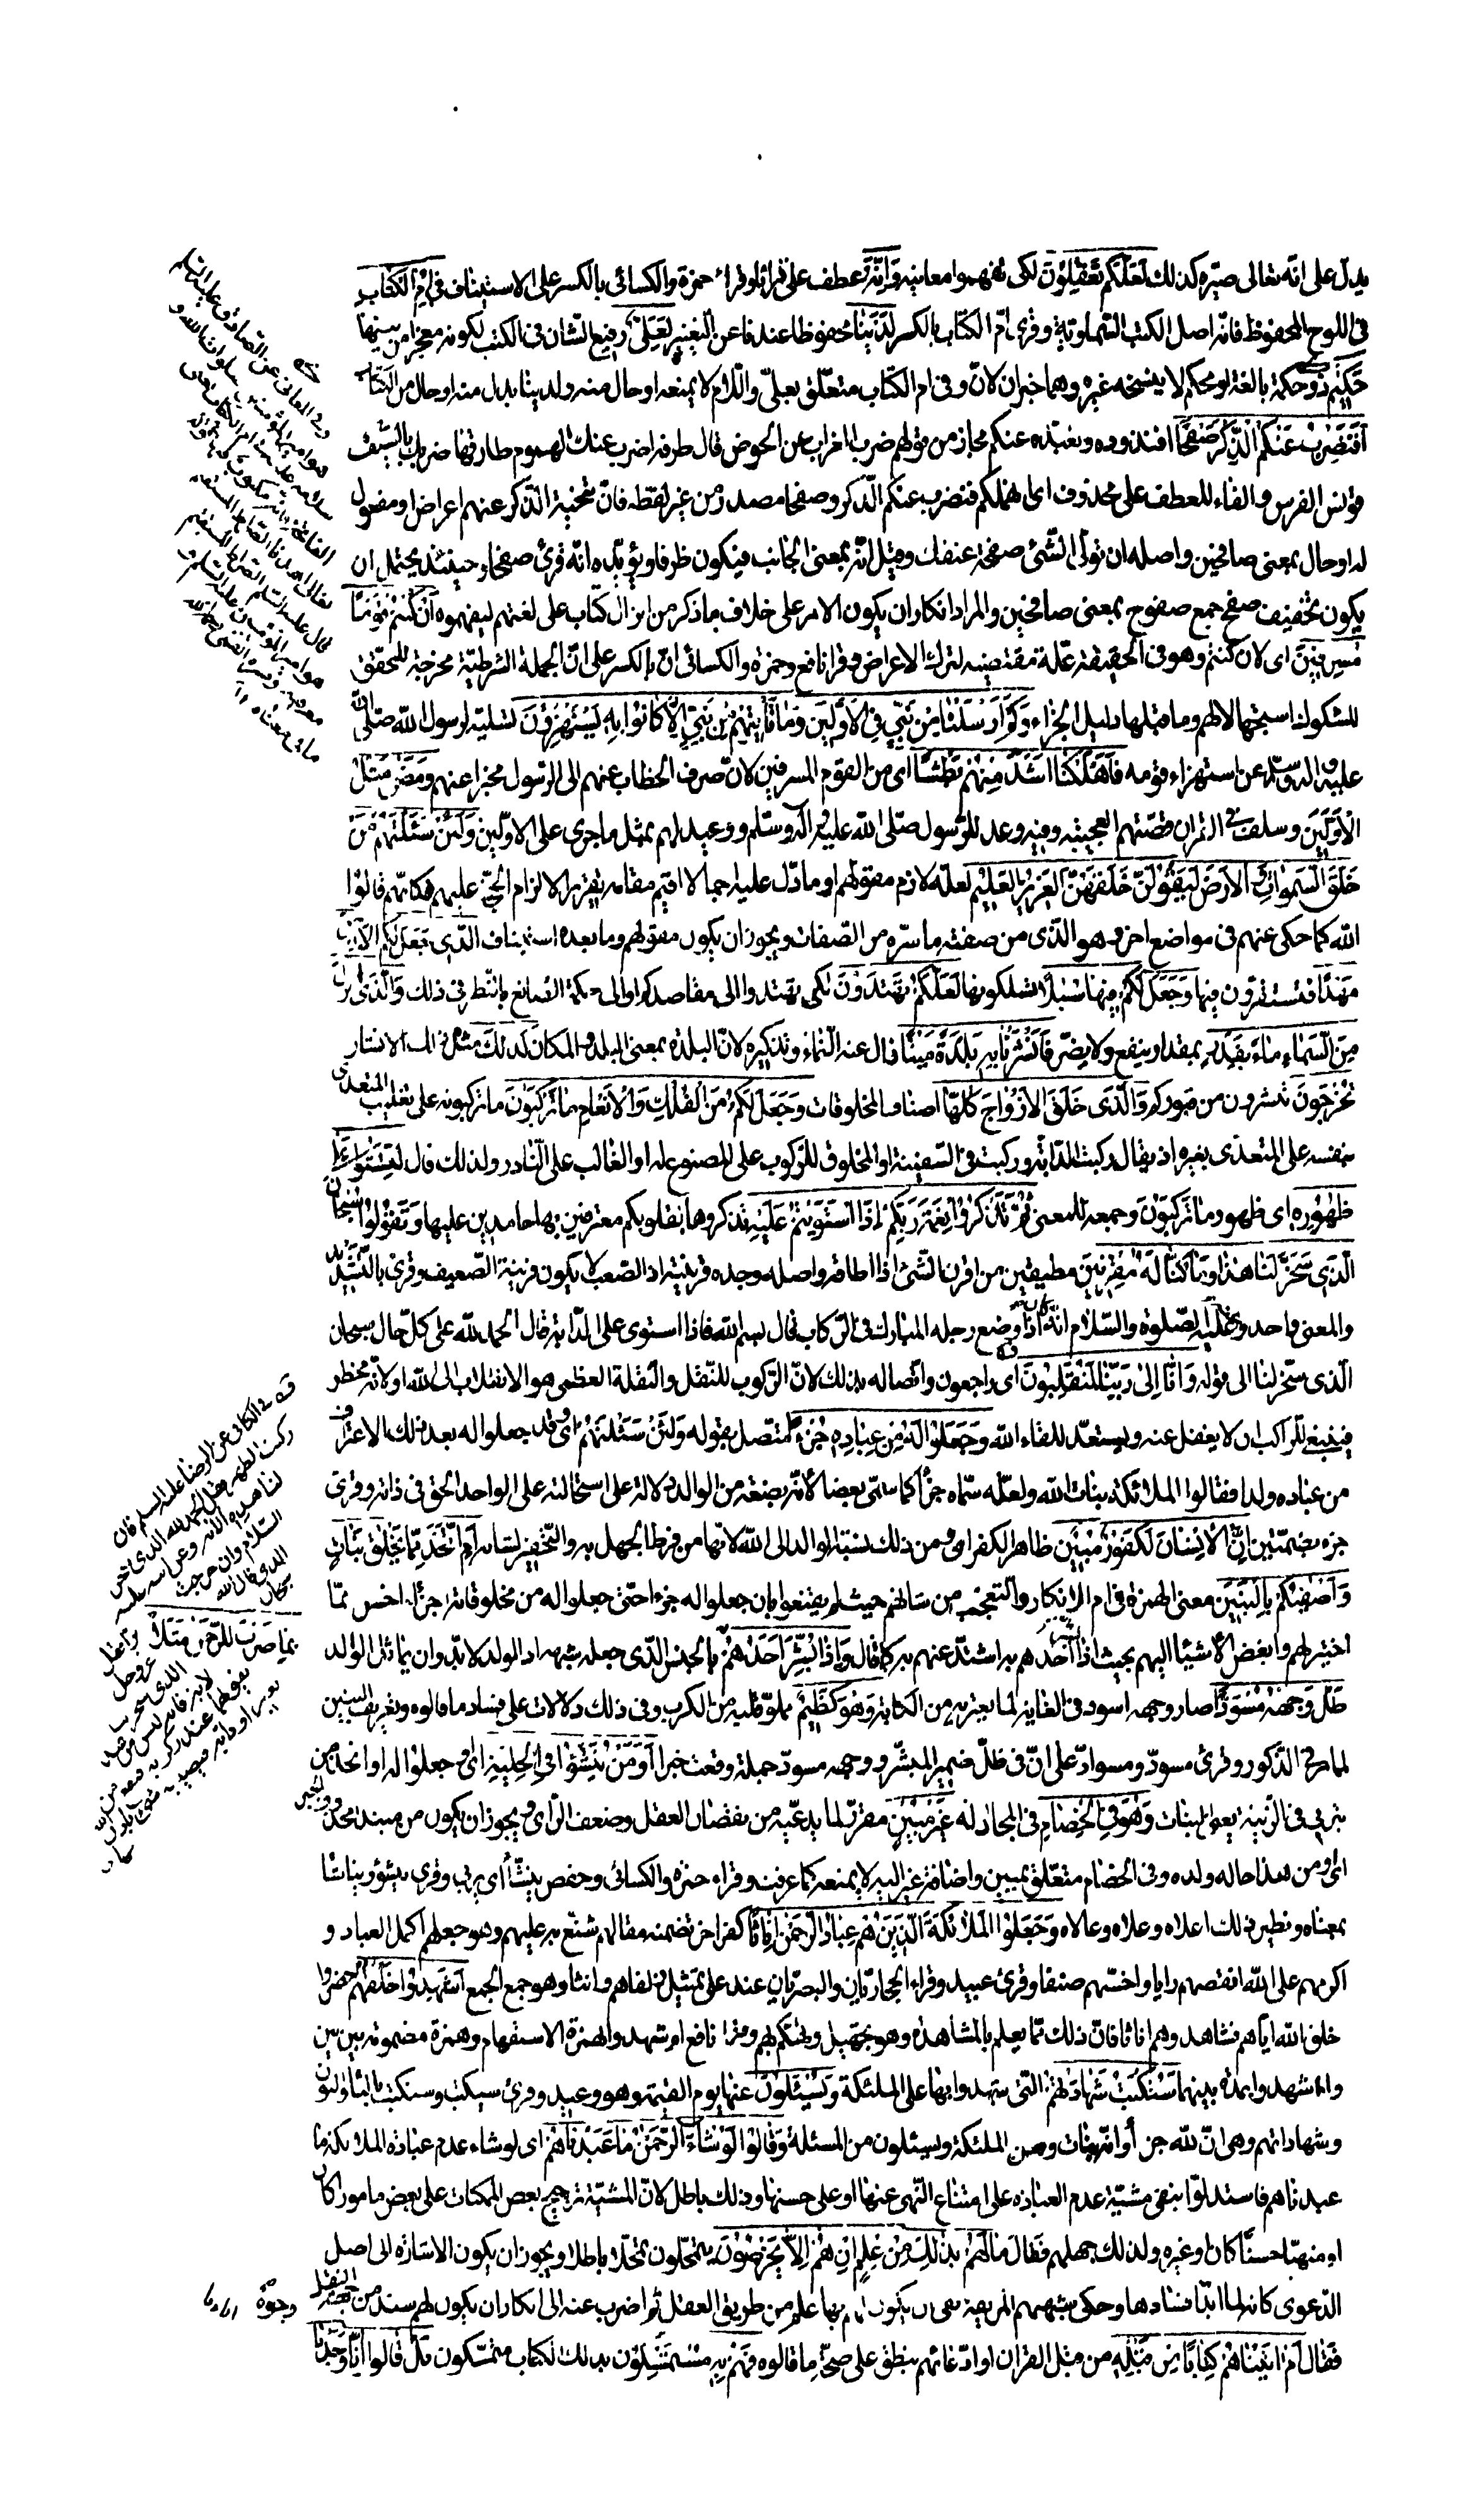 يدل على انه تعالى صيره كذلك لعلكم تعقلون لكى تفهموا معانيه وانه عطف على انا وقراء حمزة والكسائى بالكسر على الاستيناف فى ام الكتاب
فى اللوح المحفوظ فانه اصل الكتب السماوية وقرئ ام الكتاب بالكسر لدينا محفوظا عندنا عن التغيير لعلى رفيع الشان فى الكتب لكونه معجزا من بينها
حكيم ذو حكمة بالغة او محكم لا ينسخه غيره وهما خبران لان وفى ام الكتاب متعلق بعلى واللام لا يمنعه او حال منه ولدينا بدل منه او حال من الكتاب
افنضرب عنكم الذكر صفحا افنذوده ونبعده عنكم مجاز من قولهم ضرب الغرايب عن الحوض قال طرفه اضرب عنك الهموم طارقها ضربك بالسيف
قونس الفرس والفاء للعطف على محذوف اى انهملكم فنضرب عنكم الذكر وصفحا مصدر من غير لفظه فان تنحية الذكر عنهم اعراض او مفعول
له او حال بمعنى صافحين واصله ان تولى الشئ صفحة عنقك وقيل انه بمعنى الجانب فيكون ظرفا ويؤيده انه قرئ صفحا وحينئذ يحتمل ان
يكون تخفيف صفح جمع صفوح بمعنى صافحين والمراد انكار ان يكون الامر على خلاف ما ذكر من انزال كتاب على لغتهم ليفهموه ان كنتم قوما
مسرفين اى لان كنتم وهو فى الحقيقة علة مقتضية لترك الاعراض وقرا نافع وحمزة والكسائى ان بالكسر على ان الجملة الشرطية مخرجة للمحقق
للشكوك استجهالا لهم وما قبلها دليل الجزاء وكم ارسلنا من نبى فى الاولين وما يأتيهم من نبى الا كانوا به يستهزؤن تسلية لرسول الله صلى الله
عليه واله وسلم عن استهزاء قومه فاهلكنا اشد منهم بطشا اى من القوم المسرفين لان صرف الخطاب عنهم الى الرسول مخبرا عنهم ومضى مثل
الاولين وسلف فى القران قصتهم العجيبة وفيه وعد للرسول صلى الله عليه واله وسلم ووعيد لهم بمثل ما جرى على الاولين ولئن سئلتهم من
خلق السموات والارض ليقولن خلقهن العزيز العليم لعله لازم مقولهم او ما دل عليه اجمالا اقيم مقامه تقريرا لالزام الحجة عليهم فكانهم قالوا
الله كما حكى عنهم فى مواضع اخر وهو الذى من صفته ما سرد من الصفات ويجوز ان يكون مقولهم وما بعده استيناف الذى جعل لكم الارض
مهدا فتستقرون فيها وجعل لكم فيها سبلا تسلكونها لعلكم تهتدون لكى تهتدوا الى مقاصدكم او الى حكمة الصانع بالنظر فى ذلك والذى نزل
من السماء ماء بقدر بمقدار ينفع ولا يضر فانشرنا به بلدة ميتا فال عنه النماء وتذكيره لان البلدة بمعنى البلد والمكان كذلك مثل ذلك الانشار
تخرجون تنشرون من قبوركم والذى خلق الازواج كلها اصناف المخلوقات وجعل لكم من الفلك والانعام ما تركبون ما تركبونه على تغليب المتعدى
بنفسه على المتعدى بغيره اذ يقال ركبت الدابة وركبت فى السفينة او المخلوق للركوب على المصنوع له او الغالب على النادر ولذلك قال لتستوا على
ظهوره اى ظهور ما تركبون وجمعه للمعنى ثم تذكروا نعمة ربكم اذا استويتم عليه تذكروها بقلوبكم معترفين بها حامدين عليها وتقولوا سبحان
الذى سخر لنا هذا وما كنا له مقرنين مطيقين من اقرن الشئ اذا اطاقه واصله وجده قرينه اذ الصعب لا يكون قرينة الضعيف وقرئ بالتشديد
والمعنى واحد وعنه عليه الصلوة والسلام انه كان اذا وضع رجله المبارك فى الركاب قال بسم الله فاذا استوى على الدابة قال الحمد لله على كل حال سبحان
الذى سخر لنا الى قوله وانا الى ربنا لمنقلبون اى راجعون واتصاله بذلك لان الركوب للتنقل والنقلة العظمى هو الانقلاب الى الله او لانه مخطر
فينبغى للراكب ان لا يغفل عنه ويستعد للقاء الله وجعلوا له من عباده جزء متصل بقوله ولئن سئلتهم اى وقد جعلوا له بعد ذلك الاعتراف
من عباده ولدا فقالوا الملائكة بنات الله ولعله سماه جزأ كما سمى بعضا لانه بضعة من الوالد دلالة على استحالته على الواحد الحق فى ذاته وقرئ
جزء بضمتين ان الانسان لكفور مبين ظاهر الكفران ومن ذلك نسبة الولد الى الله لانها من فرط الجهل به والتحقير لشانه ام اتخذ مما يخلق بنات
واصفيكم بالبنين معنى الهمزة فى ام الانكار والتعجب من شانهم حيث لم يقنعوا بان جعلوا له جزء حتى جعلوا له من مخلوقاته جزأ اخس مما
اختير لهم وابغض الاشياء اليهم بحيث اذا بشر احدهم به اشتد غمهم به كما قال واذا بشر احدهم بما بالجنس الذى جعله شبهه اذ الولد لا بد وان يماثل الوالد
ظل وجهه مسودا صار وجهه اسود فى الغاية لما يعتريه من الكآبة وهو كظيم مملو قلبه من الكرب وفى ذلك دلالات على فساد ما قالوه وتعريف البنين
لما مر فى الذكور وقرئ مسود ومسواد على ان فى ظل ضمير المبشر ووجهه مسود جملة وقعت خبرا او من ينشؤا فى الحلية اى وجعلوا له او اتخذ من
يتربى فى الزينة يعنى البنات وهو فى الخصام فى المجادلة غير مبين مقرر لما يدعيه من نقصان العقل وضعف الراى ويجوز ان يكون من مبتدا محذوف الخبر
اى ومن هذا حاله ولده وفى الخصام متعلق بمبين واضافة غير اليه لا يمنعه كما عرفت وقراء حمزة والكسائى وحفص ينشأ اى يربى وقرئ ينشؤ ويناشا
بمعناه ونظير ذلك اعلاه وعلاه وعالاه وجعلوا الملائكة الذين هم عباد الرحمن اناثا كفر اخر تضمنه مقالهم شنع به عليهم وهو جعلهم اكمل العباد و
اكرمهم على الله انقصهم رايا واخسهم صنفا وقرئ عبيد وقراء الحجازيان والبصريان عند على تمثيل زلفاهم وانثا وهو جمع الجمع اشهدوا خلقهم احضروا
خلق الله اياهم فشاهدوهم اناثا فان ذلك مما يعلم بالمشاهدة وهو تجهيل وتهكم بهم وقرا نافع ا اشهدوا بهمزة الاستفهام وهمزة مضمومة بين بين
وا اشهدوا بمدة بينهما ستكتب شهادتهم التى شهدوا بها على الملئكة ويسئلون عنها يوم القيمة وهو وعيد وقرئ سيكتب وسنكتب بالياء والنون
وشهاداتهم وهى ان لله جزأ وانه بنات وهن الملئكة ويسئلون من المسئلة وقالوا لو شاء الرحمن ما عبدناهم اى لو شاء عدم عبادة الملائكة ما
عبدناهم فاستدلوا بنفى مشية عدم العبادة على امتناع النهى عنها او على حسنها وذلك باطل لان المشية ترجيح بعض الممكنات على بعض مامورا كان
او منهيا حسنا كان او غيره ولذلك جهلهم فقال ما لهم بذلك من علم ان هم الا يخرصون يتمحلون تمحلا باطلا ويجوز ان يكون الاشارة الى اصل
الدعوى كانه لما ابدا فسادها وحكى شبههم المزيفة نفى ان يكون لهم بها علم من طريق العقل ثم اضرب عنه الى انكار ان يكون لهم سند من جهة النقل
فقال ام اتيناهم كتابا من قبله من قبل القران او ادعائهم ينطق على صحة ما قالوه فهم به مستمسكون بذلك الكتاب متمسكون بل قالوا انا وجدنا